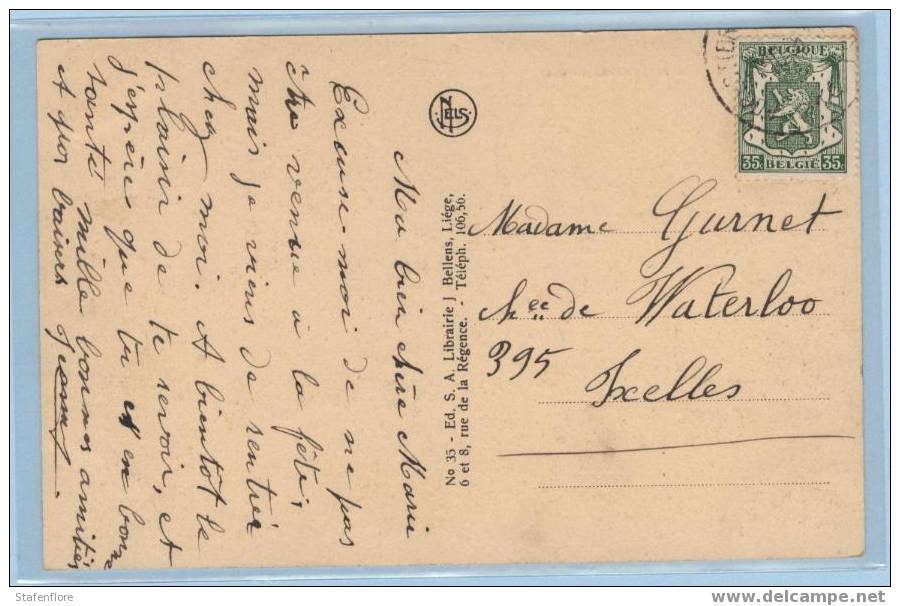 Ma bien chère Marie
Excuse-moi de ne pas
être venue à la fête,
mais je viens de rentrer
chez moi. A bientôt le
plaisir de te revoir, et
j'espère que tu es en bonne
santé mille bonnes amitiés
et gros baisers
NELS
No 35 - Ed. S. A. Librairie J Bellens, Liége,
6 et 8, rue de la Régence. - Téléph. 106,56.
BELGIQUE
35c BELGIË 35c
Madame Gurnet
Chée de Waterloo
395
Ixelles
Stafenflore
www.delcampe.net